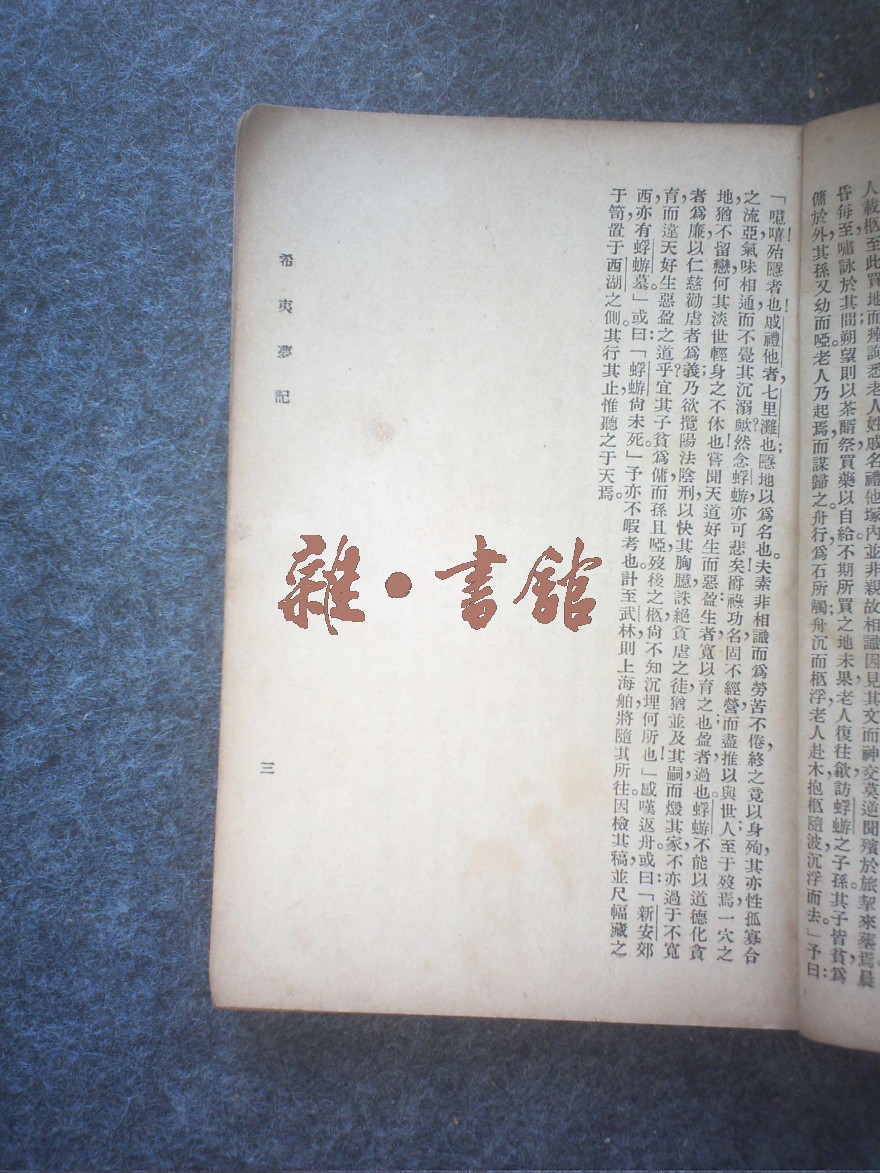 人載柩至此買地而瘞詢悉老人姓戚名禮他塚內並非親故相識因見其文而神交莫逆聞殯於旅挈來葬焉晨
昏每至嘯詠於其間朔望則以茶酹祭買藥以自給不期所買之地未果老人復往歙訪蜉蝣之子孫其子皆貧爲
傭於外其孫又幼而啞。老人乃起焉而謀歸之舟行，爲石所觸，舟沉而柩浮，老人赴木抱柩隨波沉浮而去。」予曰：
「噫嘻！殆隱者也！戚禮他者，七里灘也；隱地以爲名也。夫素非相識而爲勞苦不倦，終之竟以身殉，其亦性孤寡合
之流亞，氣味相通而不覺其沉溺歟？然念蜉蝣亦可悲矣！爵祿功名，固不經營，而盡推以與世人；至于歿焉一穴之
地，猶不留戀，何其淡世輕身之不休也！嘗聞天道好生而惡盈；生者寬以育之也，盈者過也。蜉蝣不能以道德化貪
者爲廉，以仁慈勸虐者爲義；乃欲攬陽法陰刑以快其胸臆，誅絕貪虐之徒，猶並及其嗣而燬其家，不亦過于不寬
育而違天好生惡盈之道乎？宜其子貧爲傭，而孫且啞，歿後之柩尚不知沉埋何所也！」感嘆返舟。或曰：「新安郊
西，亦有蜉蝣墓。」或曰：「蜉蝣尚未死。」予亦不暇考也。計至武林，則上海舶將隨其所往。因檢其稿並尺幅藏之
于笥，置于西湖之側。其行其止，惟聽之于天焉。
希夷夢記
三
雜•書館